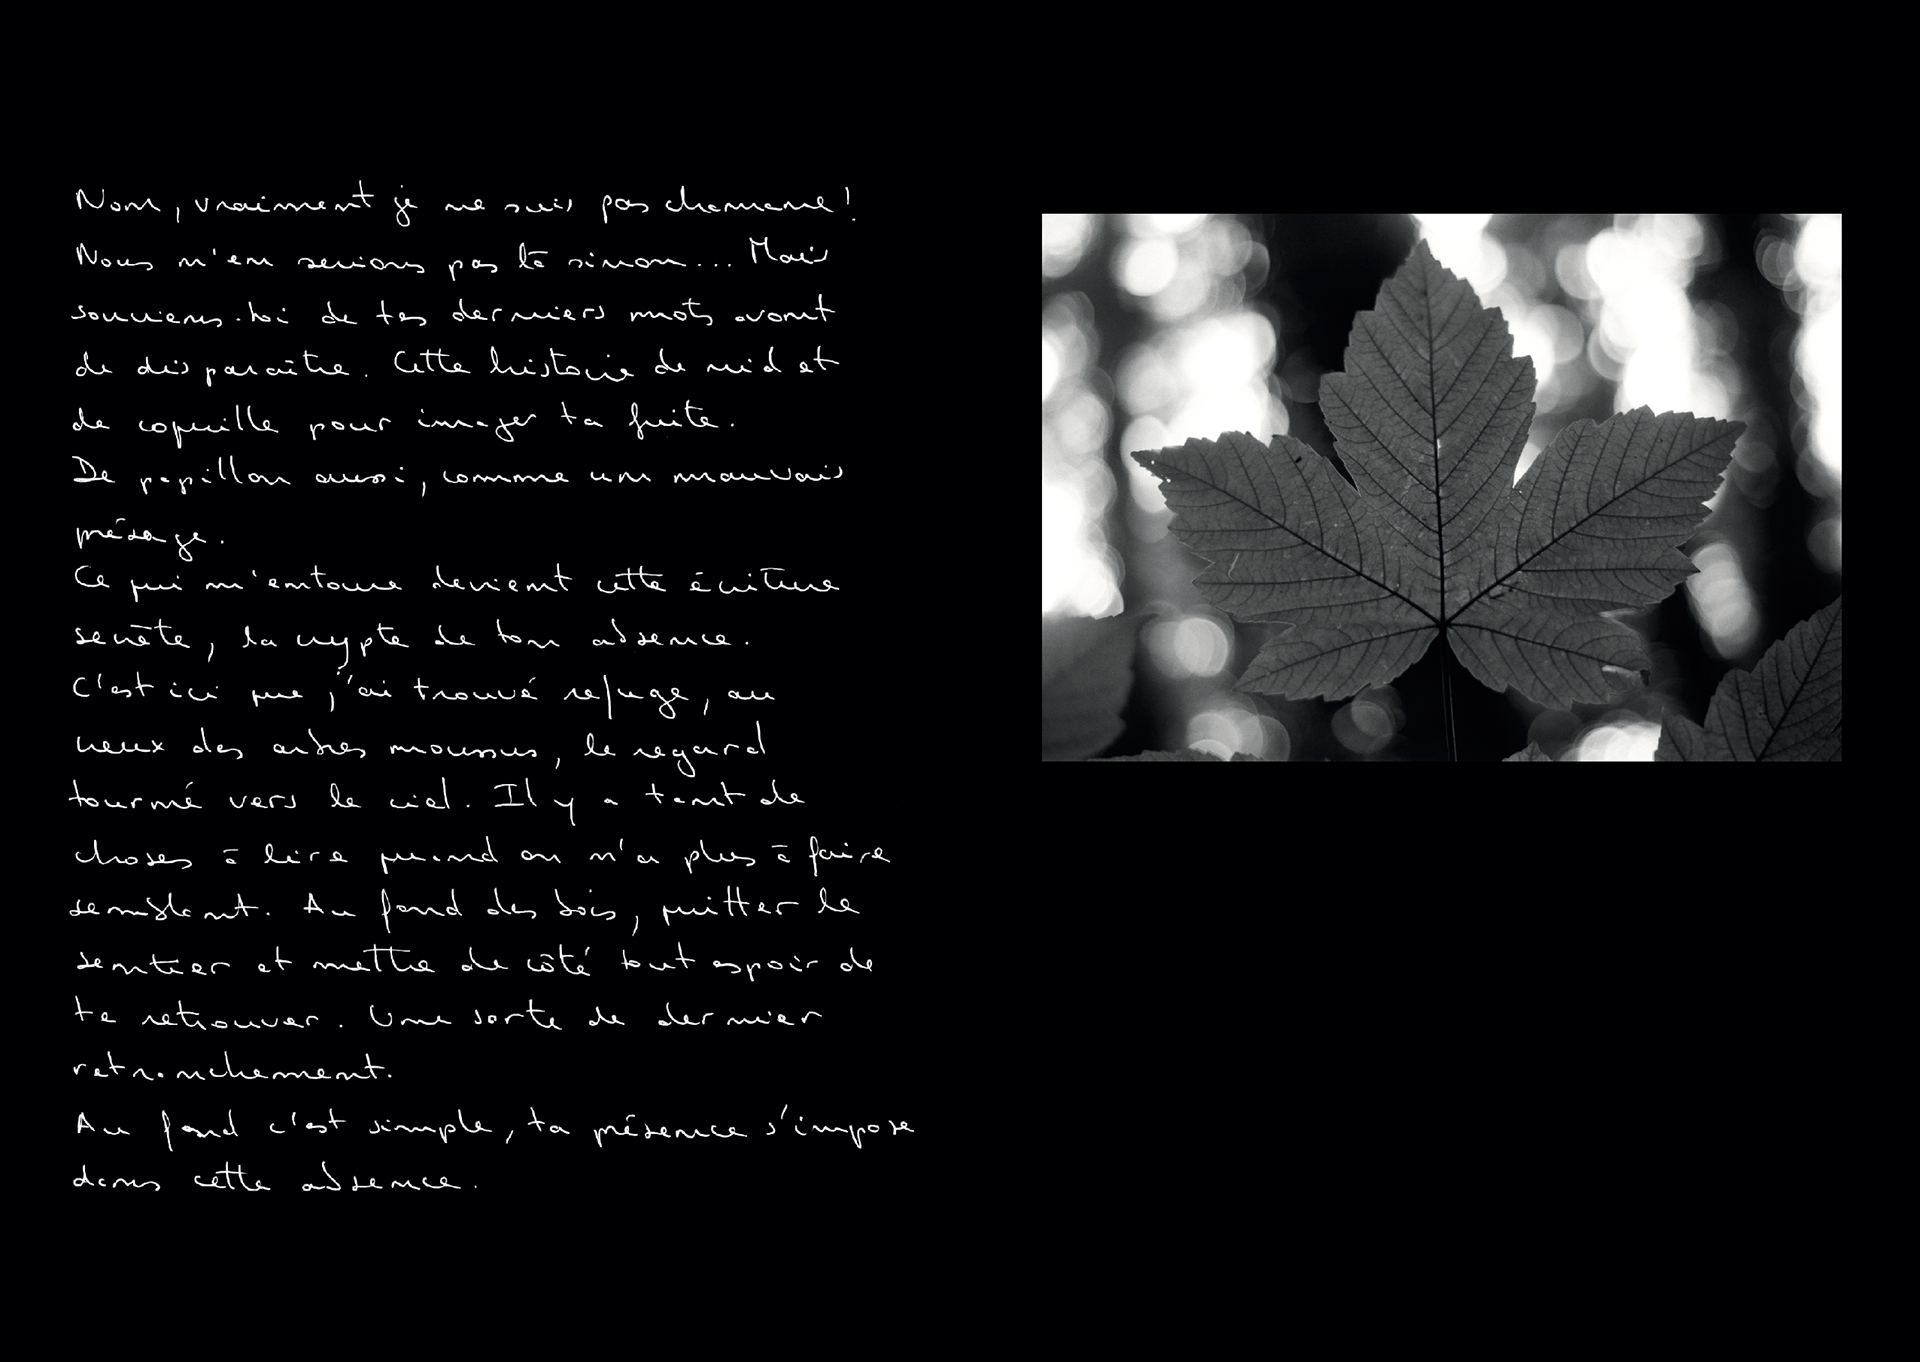 Non, vraiment je ne suis pas chamane !
Nous n'en serions pas là sinon... Mais
souviens-toi de tes derniers mots avant
de disparaître. Cette histoire de nid et
de coquille pour imager ta fuite.
De papillon aussi, comme un mauvais
présage.
Ce qui m'entoure devient cette écriture
secrète, la crypte de ton absence.
C'est ici que j'ai trouvé refuge, au
creux des arbres moussus, le regard
tourné vers le ciel. Il y a tant de
choses à lire quand on n'a plus à faire
semblant. Au fond des bois, quitter le
sentier et mettre de côté tout espoir de
te retrouver. Une sorte de dernier
retranchement.
Au fond c'est simple, ta présence s'impose
dans cette absence.